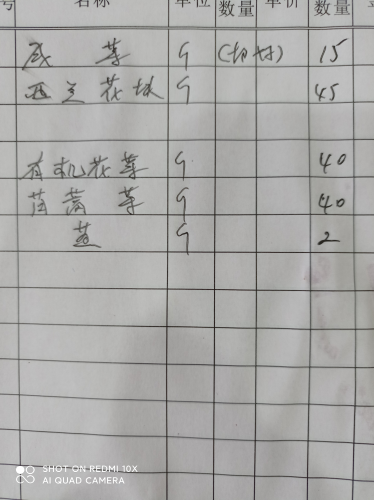 号 名称 单位 数量 单价 数量
咸菜 斤 (切好) 15
西兰花 斤 45
有机花菜 斤 40
斤 40
斤 2
SHOT ON REDMI 10X
AI QUAD CAMERA